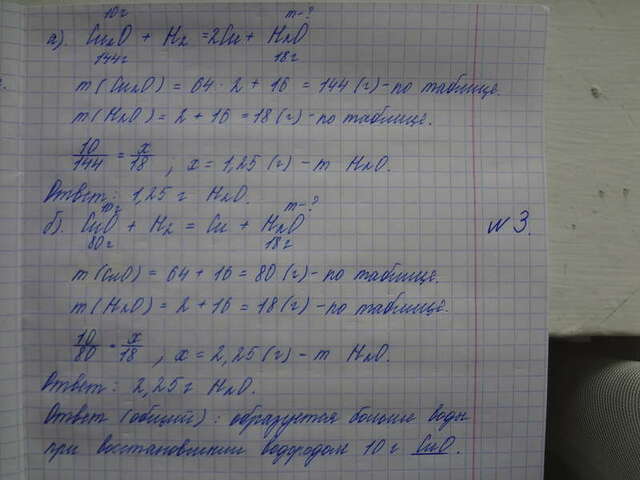 10г m-?
а). Cu₂O + H₂ = 2Cu + H₂O
144г 18г
m(Cu₂O) = 64·2 + 16 = 144 (г) - по таблице
m(H₂O) = 2 + 16 = 18 (г) - по таблице.
10/144 = x/18 ; x = 1,25 (г) - m H₂O.
Ответ: 1,25 г H₂O.
10г m-?
б). CuO + H₂ = Cu + H₂O №3.
80г 18г
m(CuO) = 64 + 16 = 80 (г) - по таблице.
m(H₂O) = 2 + 16 = 18 (г) - по таблице.
10/80 = x/18 , x = 2,25 (г) - m H₂O.
Ответ: 2,25 г H₂O.
Ответ (общий): образуется больше воды
при восстановлении водородом 10 г CuO.